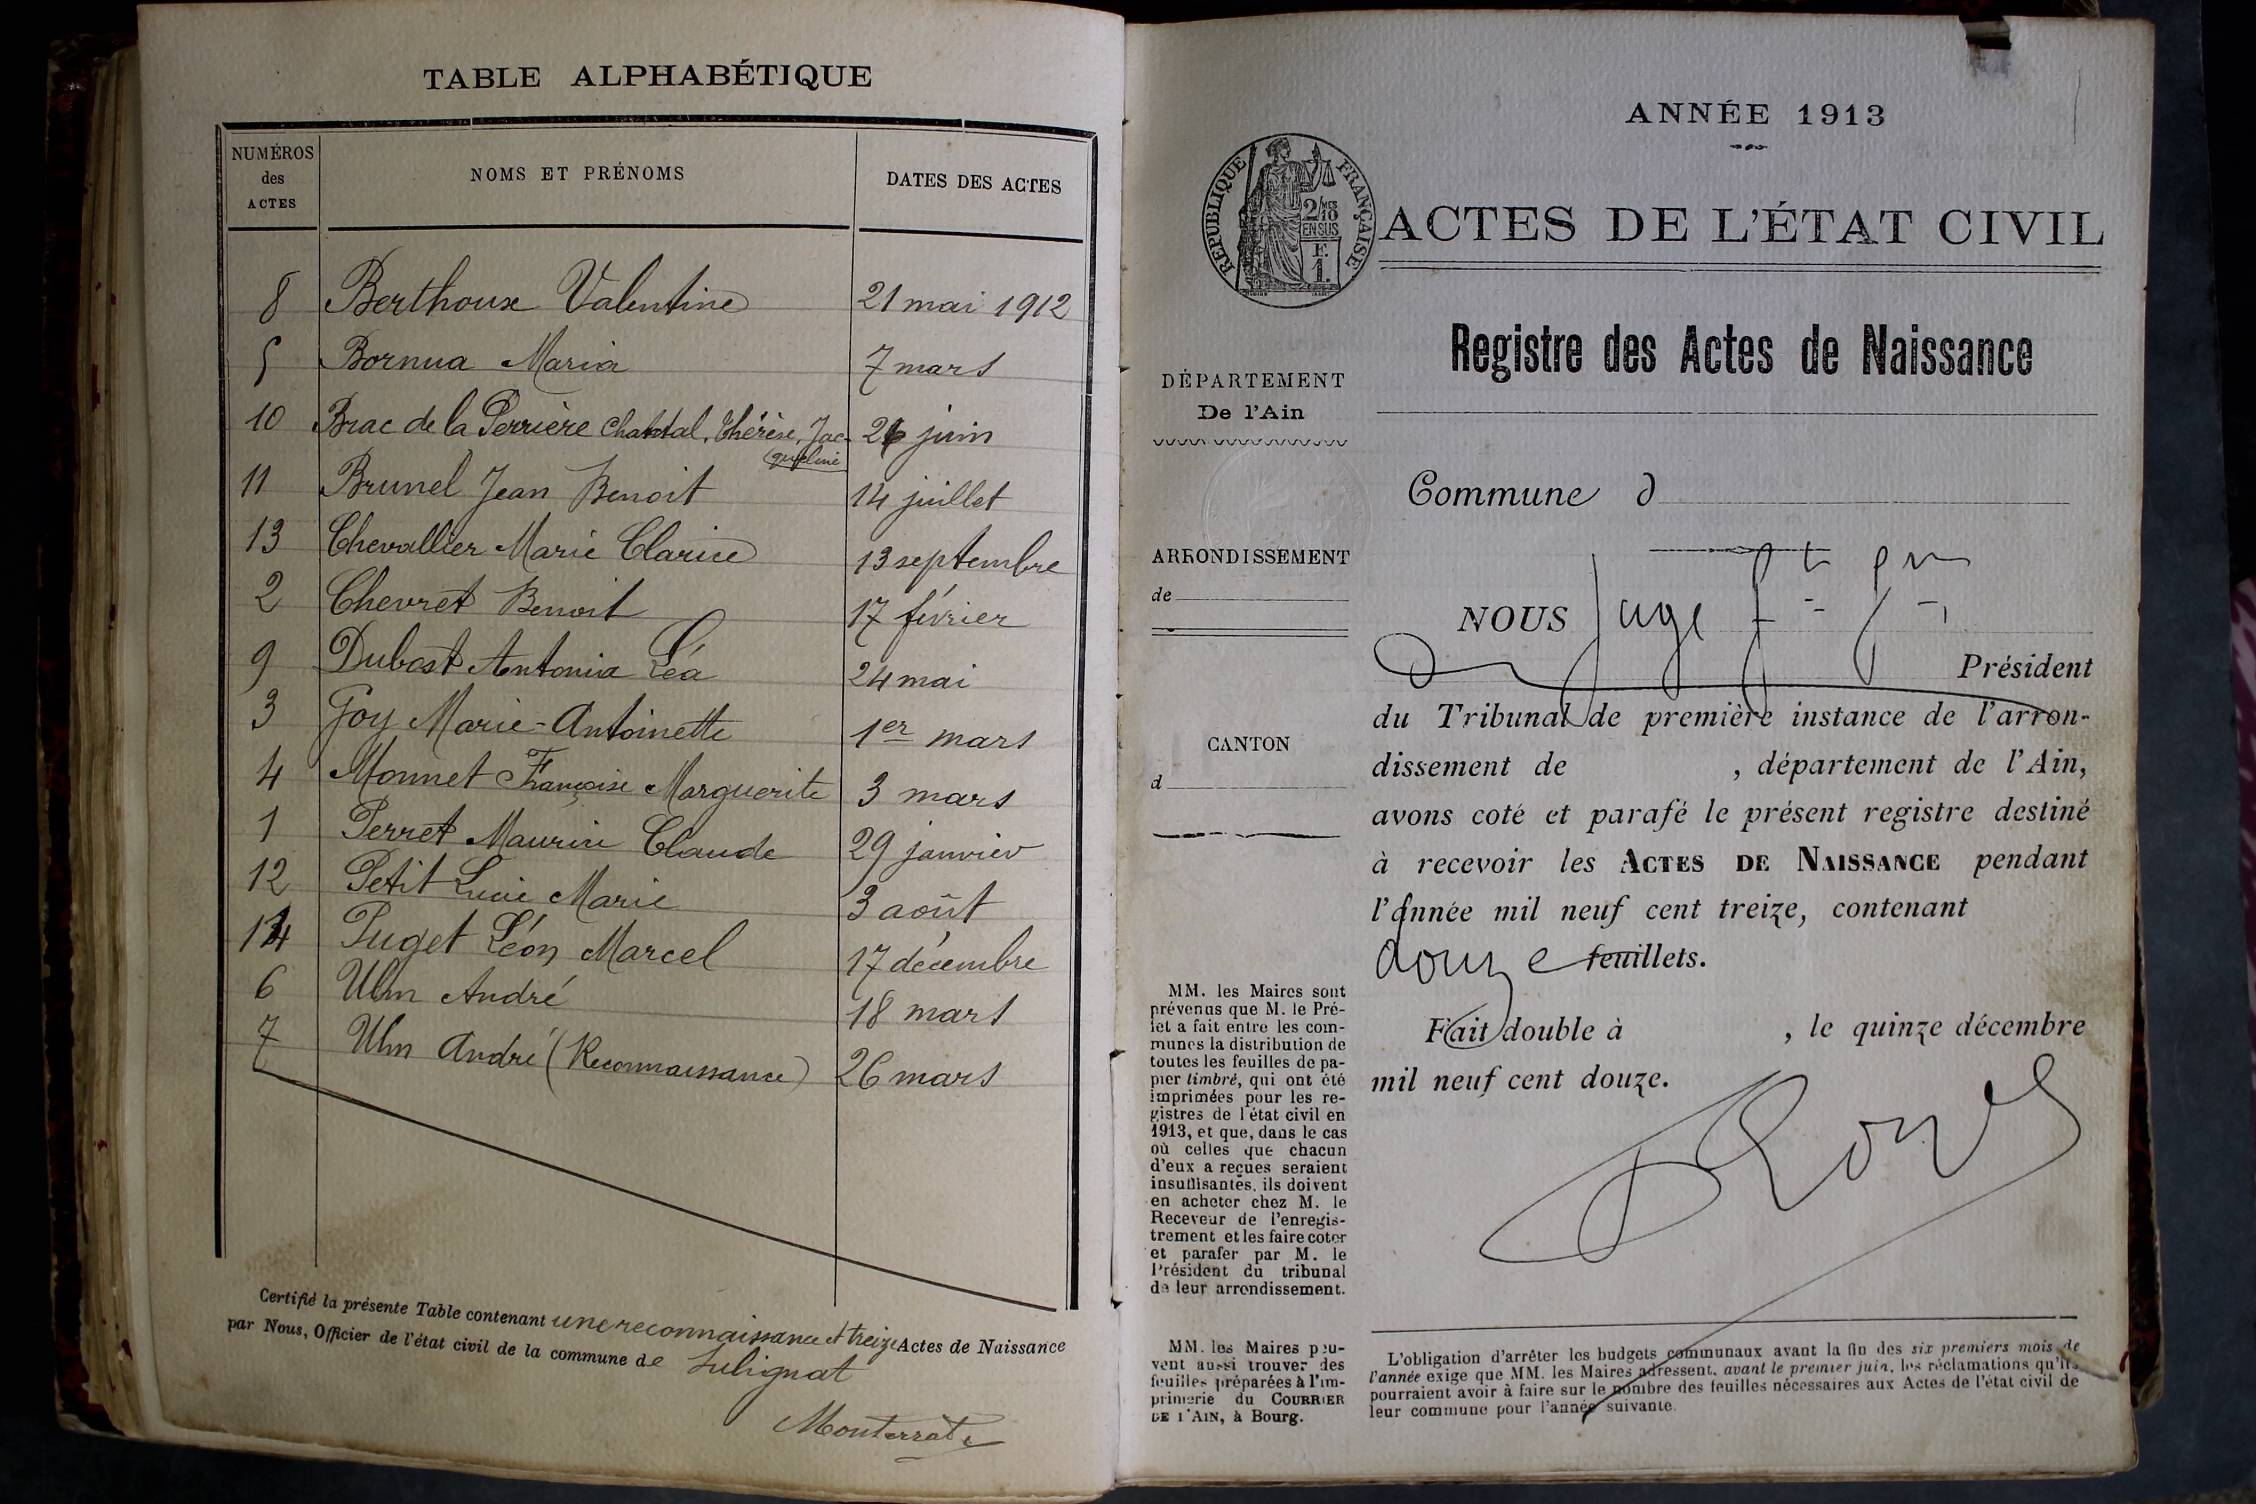 TABLE ALPHABÉTIQUE
NUMÉROS des ACTES NOMS ET PRÉNOMS DATES DES ACTES
8 Berthoux Valentine 21 mai 1912
5 Bornua Maria 7 mars
10 Brac de la Perrière Chantal, Thérèse, Jac- 26 juin
queline
11 Brunel Jean Benoit 14 juillet
13 Chevallier Marie Clarice 13 septembre
2 Chevret Benoit 17 février
9 Dubost Antonia Léa 24 mai
3 Goy Marie-Antoinette 1er mars
4 Monnet Françoise Marguerite 3 mars
1 Perret Maurice Claude 29 janvier
12 Petit Lucie Marie 3 août
14 Puget Léon Marcel 17 décembre
6 Ulm André 18 mars
7 Ulm André (Reconnaissance) 26 mars
Certifié la présente Table contenant une reconnaissance et treize Actes de Naissance
par Nous, Officier de l'état civil de la commune de Sulignat
Monterrat
ANNÉE 1913
RÉPUBLIQUE FRANÇAISE
2/10 MES
EN SUS
F.
1.
ACTES DE L'ÉTAT CIVIL
Registre des Actes de Naissance
DÉPARTEMENT
De l'Ain
ARRONDISSEMENT
de
CANTON
d
MM. les Maires sont
prévenus que M. le Pré-
fet a fait entre les com-
munes la distribution de
toutes les feuilles de pa-
pier timbré, qui ont été
imprimées pour les re-
gistres de l'état civil en
1913, et que, dans le cas
où celles que chacun
d'eux a reçues seraient
insuffisantes, ils doivent
en acheter chez M. le
Receveur de l'enregis-
trement et les faire coter
et parafer par M. le
Président du tribunal
de leur arrondissement.
MM. les Maires peu-
vent aussi trouver des
feuilles préparées à l'im-
primerie du COURRIER
DE L'AIN, à Bourg.
Commune d
NOUS juge
Président
du Tribunal de première instance de l'arron-
dissement de , département de l'Ain,
avons coté et parafé le présent registre destiné
à recevoir les ACTES DE NAISSANCE pendant
l'année mil neuf cent treize, contenant
douze feuillets.
Fait double à , le quinze décembre
mil neuf cent douze.
L'obligation d'arrêter les budgets communaux avant la fin des six premiers mois de
l'année exige que MM. les Maires adressent, avant le premier juin, les réclamations qu'ils
pourraient avoir à faire sur le nombre des feuilles nécessaires aux Actes de l'état civil de
leur commune pour l'année suivante.